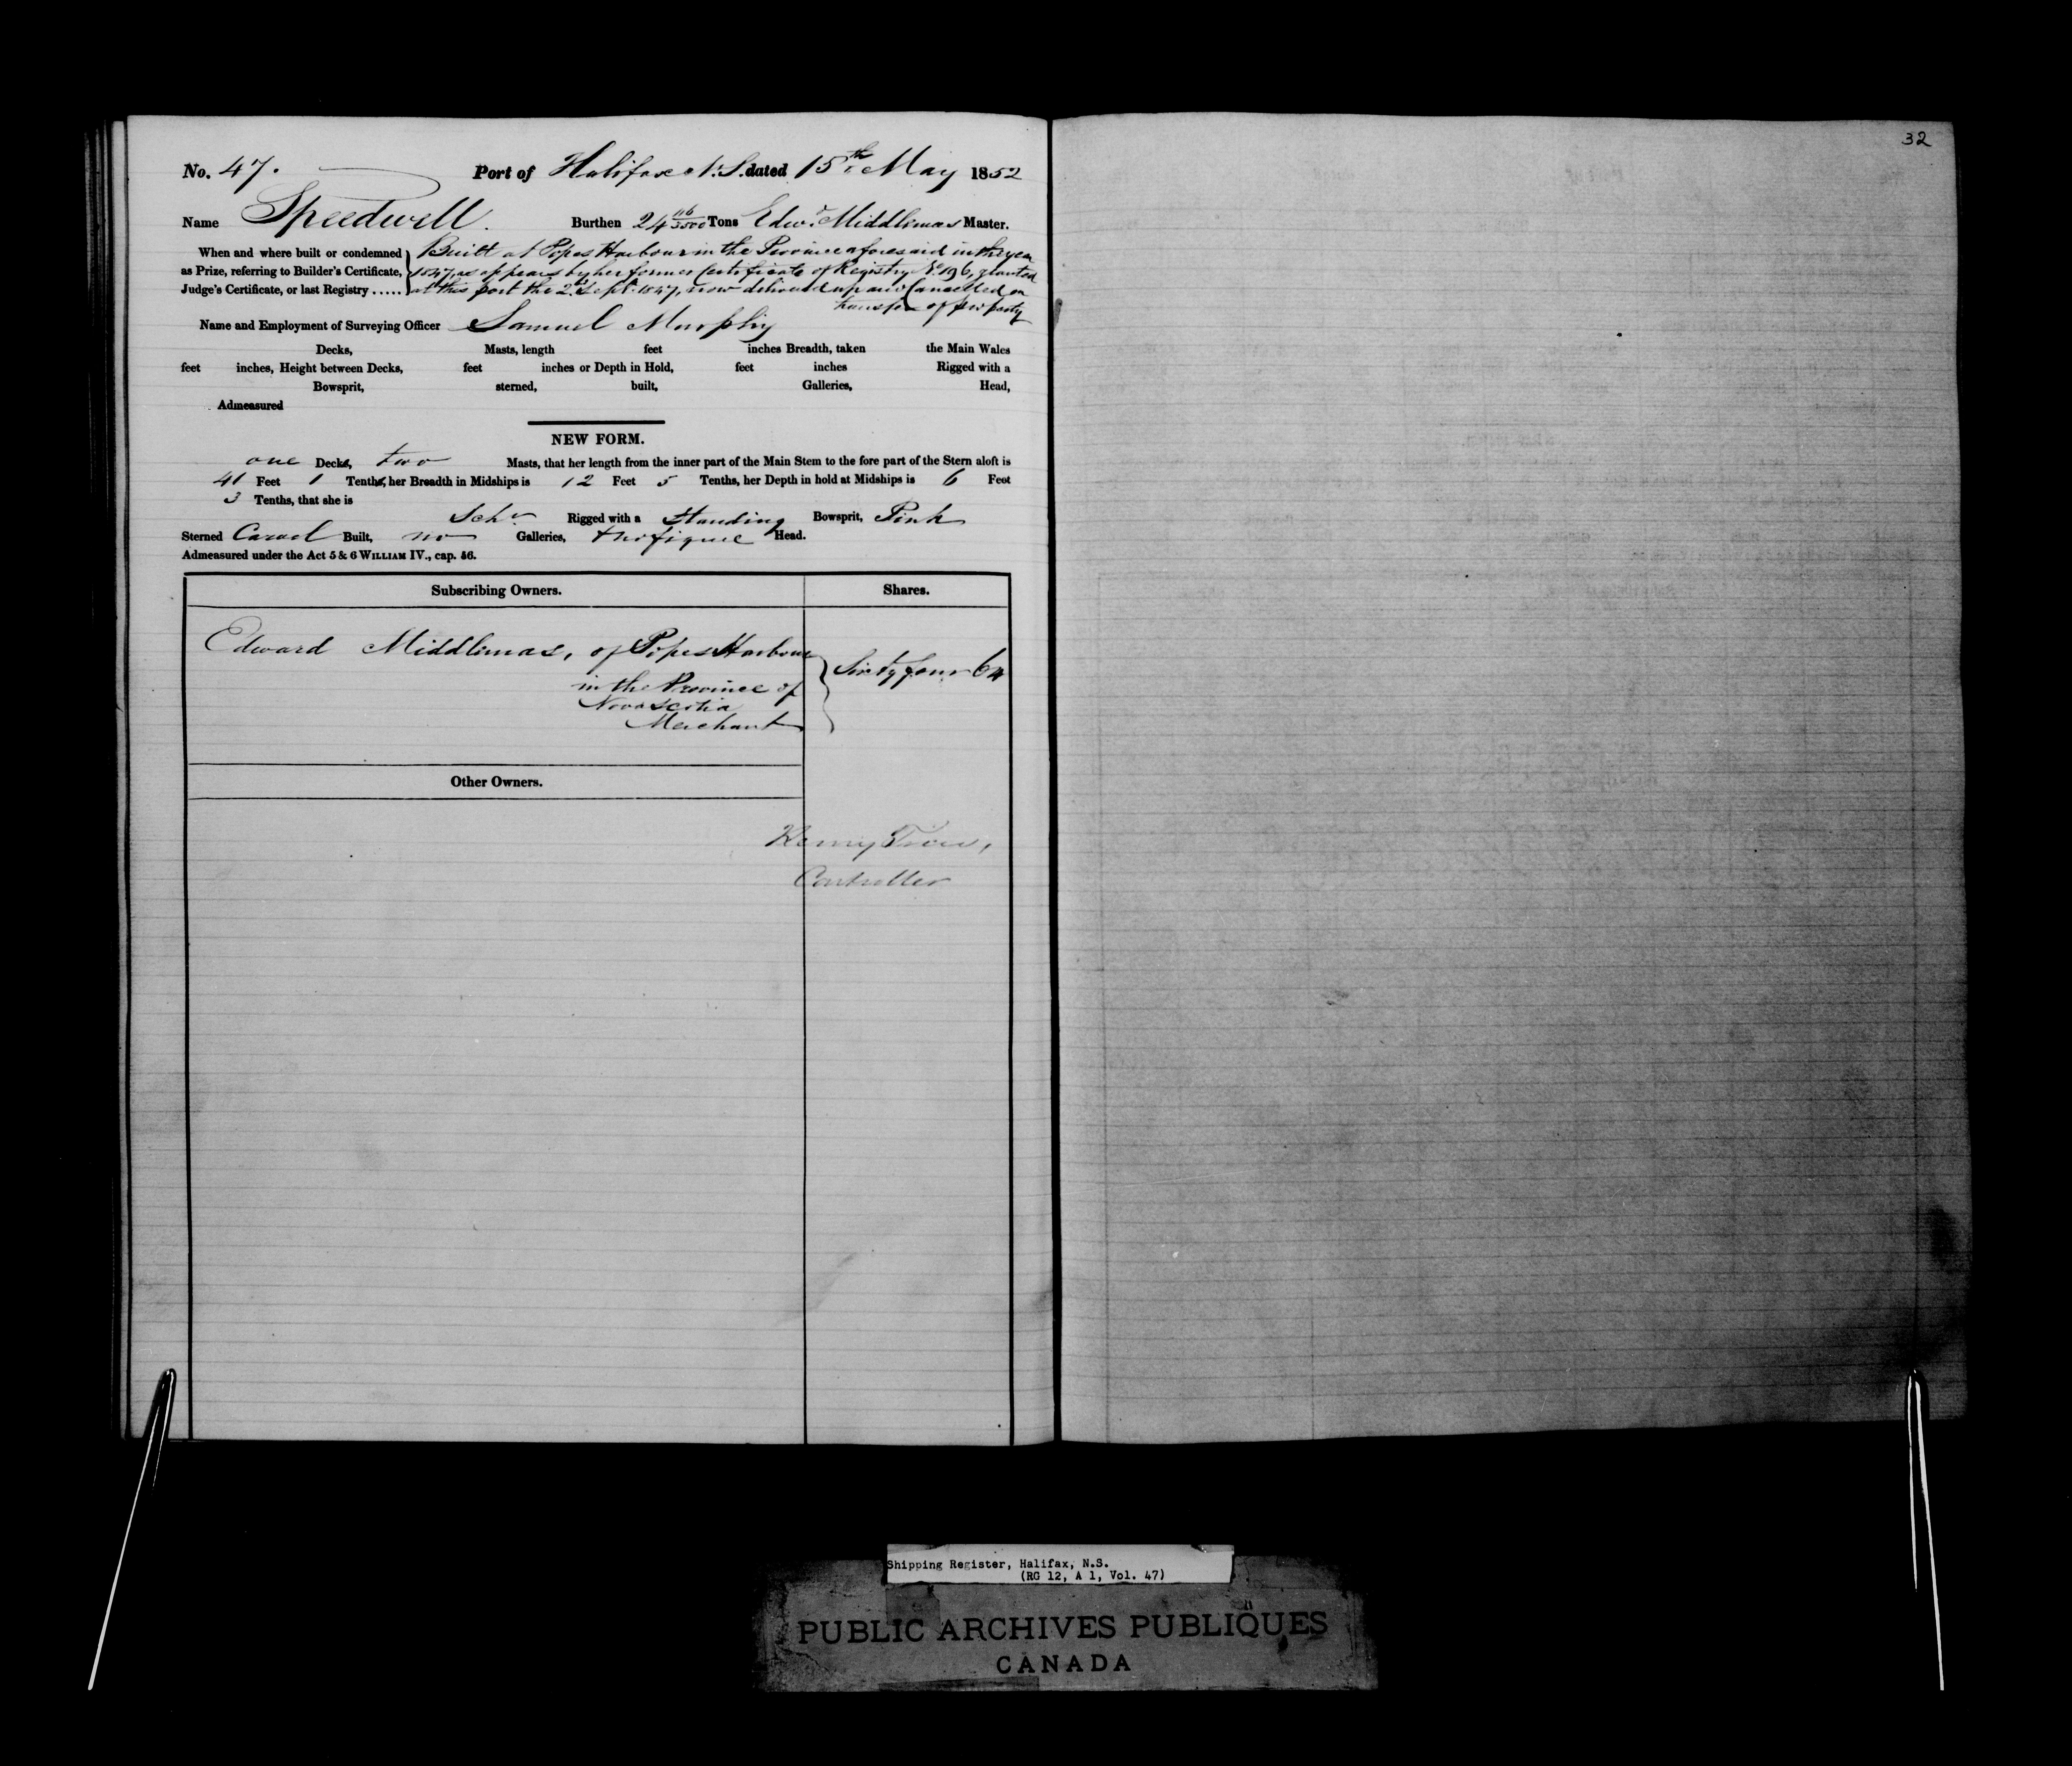 32
No. 47. Port of Halifax N.S. dated 15th May 1852
Name Speedwell. Burthen 24 116/3500 Tons Edwd. Middlemas Master.
When and where built or condemned as Prize, referring to Builder's Certificate, Judge's Certificate, or last Registry .....
Built at Popes Harbour in the Province aforesaid in the year
1847, as appears by her former Certificate of Registry No. 196, granted
at this port the 2nd Sept. 1847, now delivered up and Cancelled on
transfer of property
Name and Employment of Surveying Officer Samuel Murphy
Decks, Masts, length feet inches Breadth, taken the Main Wales
feet inches, Height between Decks, feet inches or Depth in Hold, feet inches Rigged with a
Bowsprit, sterned, built, Galleries, Head,
Admeasured
NEW FORM.
one Decks, two Masts, that her length from the inner part of the Main Stem to the fore part of the Stern aloft is
41 Feet 1 Tenths, her Breadth in Midships is 12 Feet 5 Tenths, her Depth in hold at Midships is 6 Feet
3 Tenths, that she is
Schr Rigged with a Standing Bowsprit, Pink
Sterned Carvel Built, no Galleries, Head.
Admeasured under the Act 5 & 6 WILLIAM IV., cap. 56.
Subscribing Owners. Shares.
Edward Middlemas, of Popes Harbour
in the Province of
Nova Scotia
Merchant
Sixty four 64
Other Owners.
Henry
Controller
Shipping Register, Halifax, N.S.
(RG 12, A 1, Vol. 47)
PUBLIC ARCHIVES PUBLIQUES
CANADA